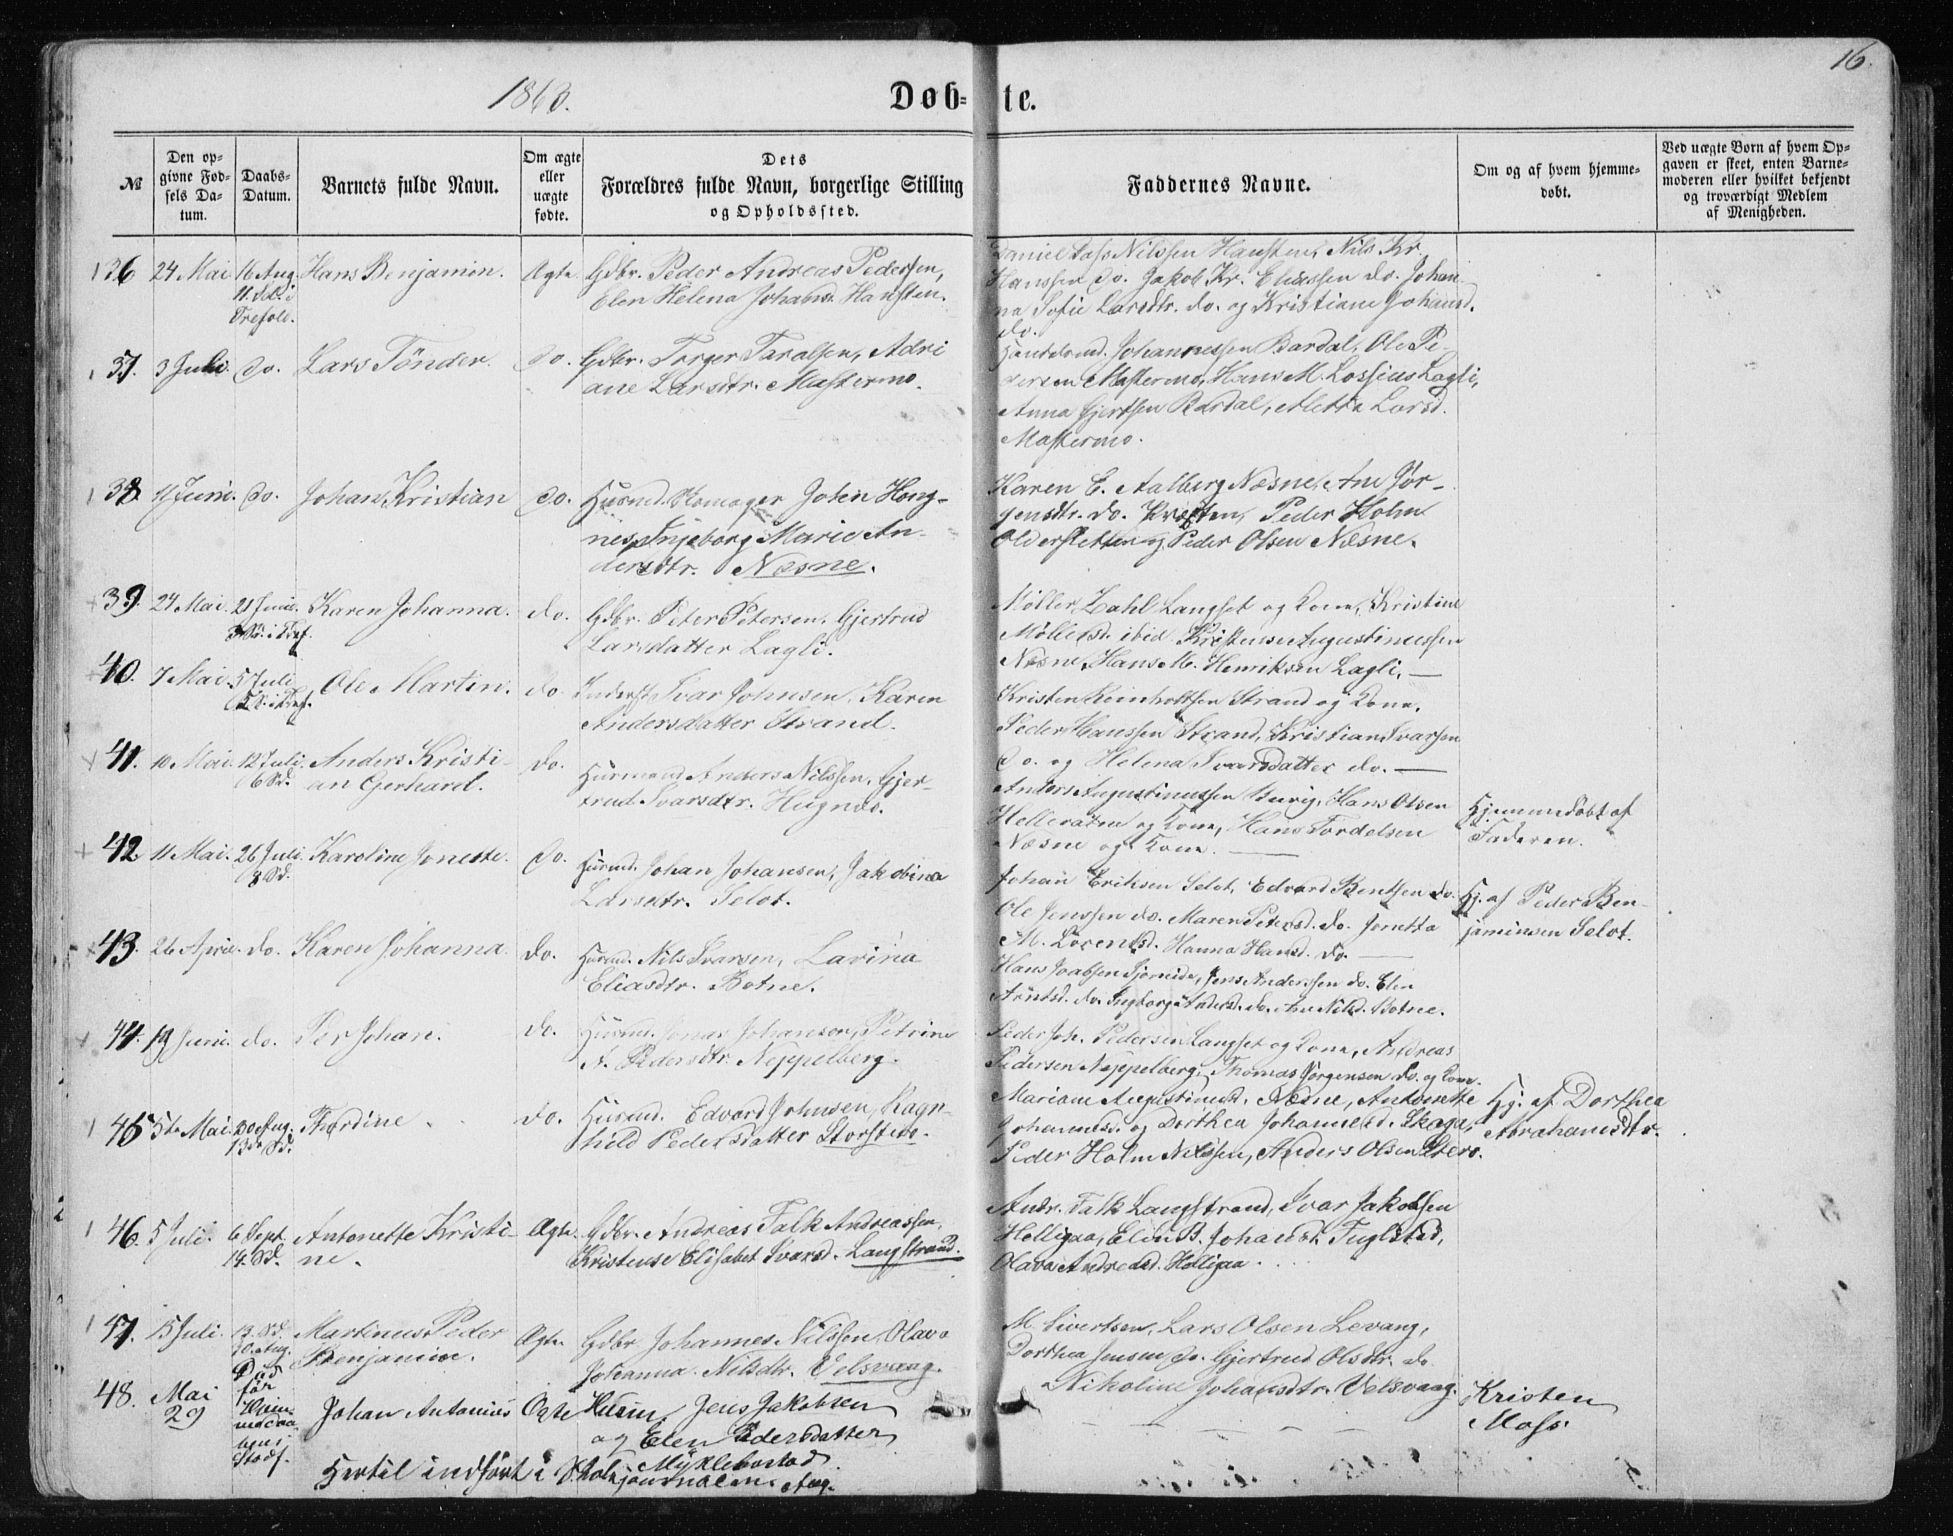 16.
1863.
Døb-te.
№
Den op-
givne Fød-
sels Da-
tum.
Daabs-
Datum.
Barnets fulde Navn.
Om ægte
eller
uægte
fødte.
Dets
Forældres fulde Navn, borgerlige Stilling
og Opholdssted.
Faddernes Navne.
Om og af hvem hjemme-
døbt.
Ved uægte Børn af hvem Op-
gaven er skeet, enten Barne-
moderen eller hvilket bekjendt
og troværdigt Medlem
af Menigheden.
36 24 Mai 16 Aug. Hans Benjamin. Ægte Gdbr. Peder Andreas Pedersen,
Elen Helena Johansd. Hansten.
Nilssen Hansten, Nils Kr.
Hanssen do. Jakob Kr. Eliassen do. Johan-
na Sofie Larsdtr. do. og Kristiane Johansd.
do.
37. 3 Juli. do. Lars Tönder. do. Gdbr. Torger Taralsen, Adri
ane Larsdtr. Mastermo.
Johannessen Bardal, Ole Pe-
dersen Mastermo, Hans M. Lossius Lagli,
Anna Gjertsen Bardal, Aletta Larsd.
Mastermo.
38. 11 Juni. do. Johan Kristian do. Husmd. Komager John Hong-
nes, Injeborg Marie An-
dersdtr. Nesne.
Karen E. Aalberg Nesne, Ane Jör-
gensdtr. do. Peder Holm
og Peder Olsen Nesne.
39. 24 Mai. 21 Juni. Karen Johanna. do. Gdbr. Peter Petersen, Gjertrud
Larsdatter Lagli.
Möller Zahl Langset og Kone, Kristine
Möllersd. ibid. Kristense Augustinussen
Nesne, Hans M. Henriksen Lagli. —
40. 7 Mai. 5 Juli Ole Martin. do. Inderst Ivar Johnsen, Karen
Andersdatter Strand.
Kristen Reinholtsen Strand og Kone,
Peder Hanssen Strand, Kristian Ivarsen
do. og Helena Ivarsdatter do. —
41. 10 Mai. 12 Juli. Anders Kristi-
6 Sd. an Gerhard. do. Husmand Anders Nilssen, Gjer-
trud Ivarsdtr. Hugnes.
Anders Augustinussen Hans Olsen
og Kone, Hans Tordelsen
Nesne og Kone. —
Hjemmedöbt af
Faderen.
42. 11 Mai. 26 Juli. Karoline Jonette. do. Husmd. Johan Johansen, Jakobina
8 Sd. Larsdtr. Selot.
Johan Eriksen Selot, Edvard Bentsen do.
Ole Jenssen do. Maren Petersd. do. Jonetta
M. Lorentsd. Hanna Hansd. do. —
Hj. af Peder Ben-
jaminsen Selot.
43. 26 April. do. Karen Johanna. do. Husmd. Nils Ivarsen, Lavina
Eliasdtr. Botne.
Hans Jens Anderssen do. Elen
Arntsd. do. Ingborg Andersd. do. Ane Nilsd. Botne.
44. 19 Juni. do. Per Johan. do. Husmd. Jonas Johansen, Petrine
A. Pedersdtr. Neppelberg.
Peder Joh. Pedersen Langset og Kone, Andreas
Pedersen Neppelberg, Thomas Jörgensen do. og Kone.
45 5te Mai 30 Aug. Thordine. do. Husmd. Edvard Johnsen, Ragn-
13de Sd. hild Pedersdatter Storsten.
Mariane Augustinusd. Nesne, Antonette
Johannesd. og Dorthea Johannesd. Skaga,
Peder Holm Nilssen, Anders Olsen
Hj. af Dorthea
Abrahamsdtr.
46. 5 Juli. 6 Sept. Antonette Kristi-
14. Sd. ne. Ægte. Gdbr. Andreas Falk Andreassen,
Kristense Elisabet Ivarsd. Langstrand.
Andr. Falk Langstrand, Ivar Jakobsen
Helligaa, Elen B. Johansd. Fuglstad,
Olava Andreasd. Helligaa. . . .
47. 15 Juli. 13. Sd. Martinus Peder
30. Aug. Benjamin. Ægte. Gdbr Johannes Nilssen, Olava
Johanna Nilsdtr. Velsvaag.
M. Sivertsen, Lars Olsen Levang,
Dorthea Jensen do. Gjertrud Olsdtr. do.
Nikoline Johansdtr. Velsvaag.
48. Mai
29 Död
før
Johan Antonius Ægte Husm, Jens Jakobsen
og Elen Pedersdatter
Myklebostad
Kristen
Moss.
Hertil indført i Skolejournalen. Aug.